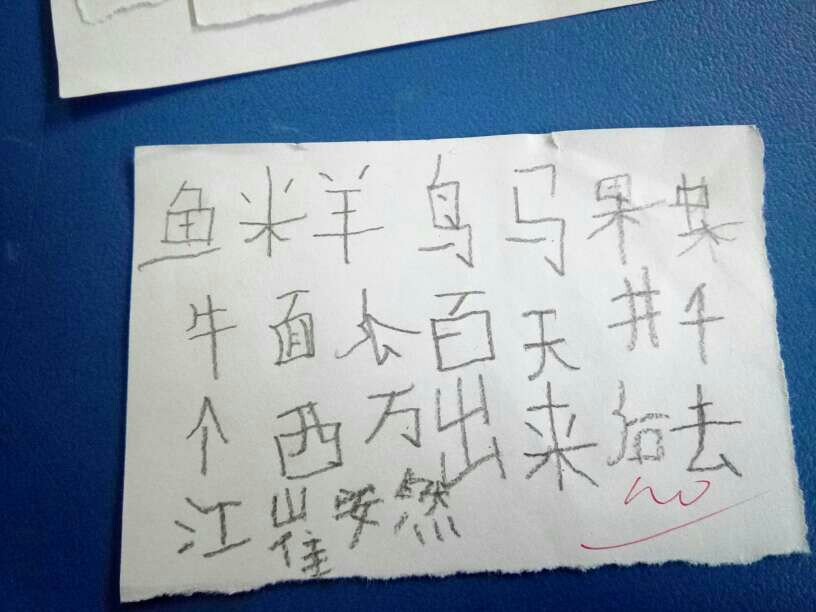 鱼米羊鸟马果
牛面百天井千
个西万出来去
江崔安然
100